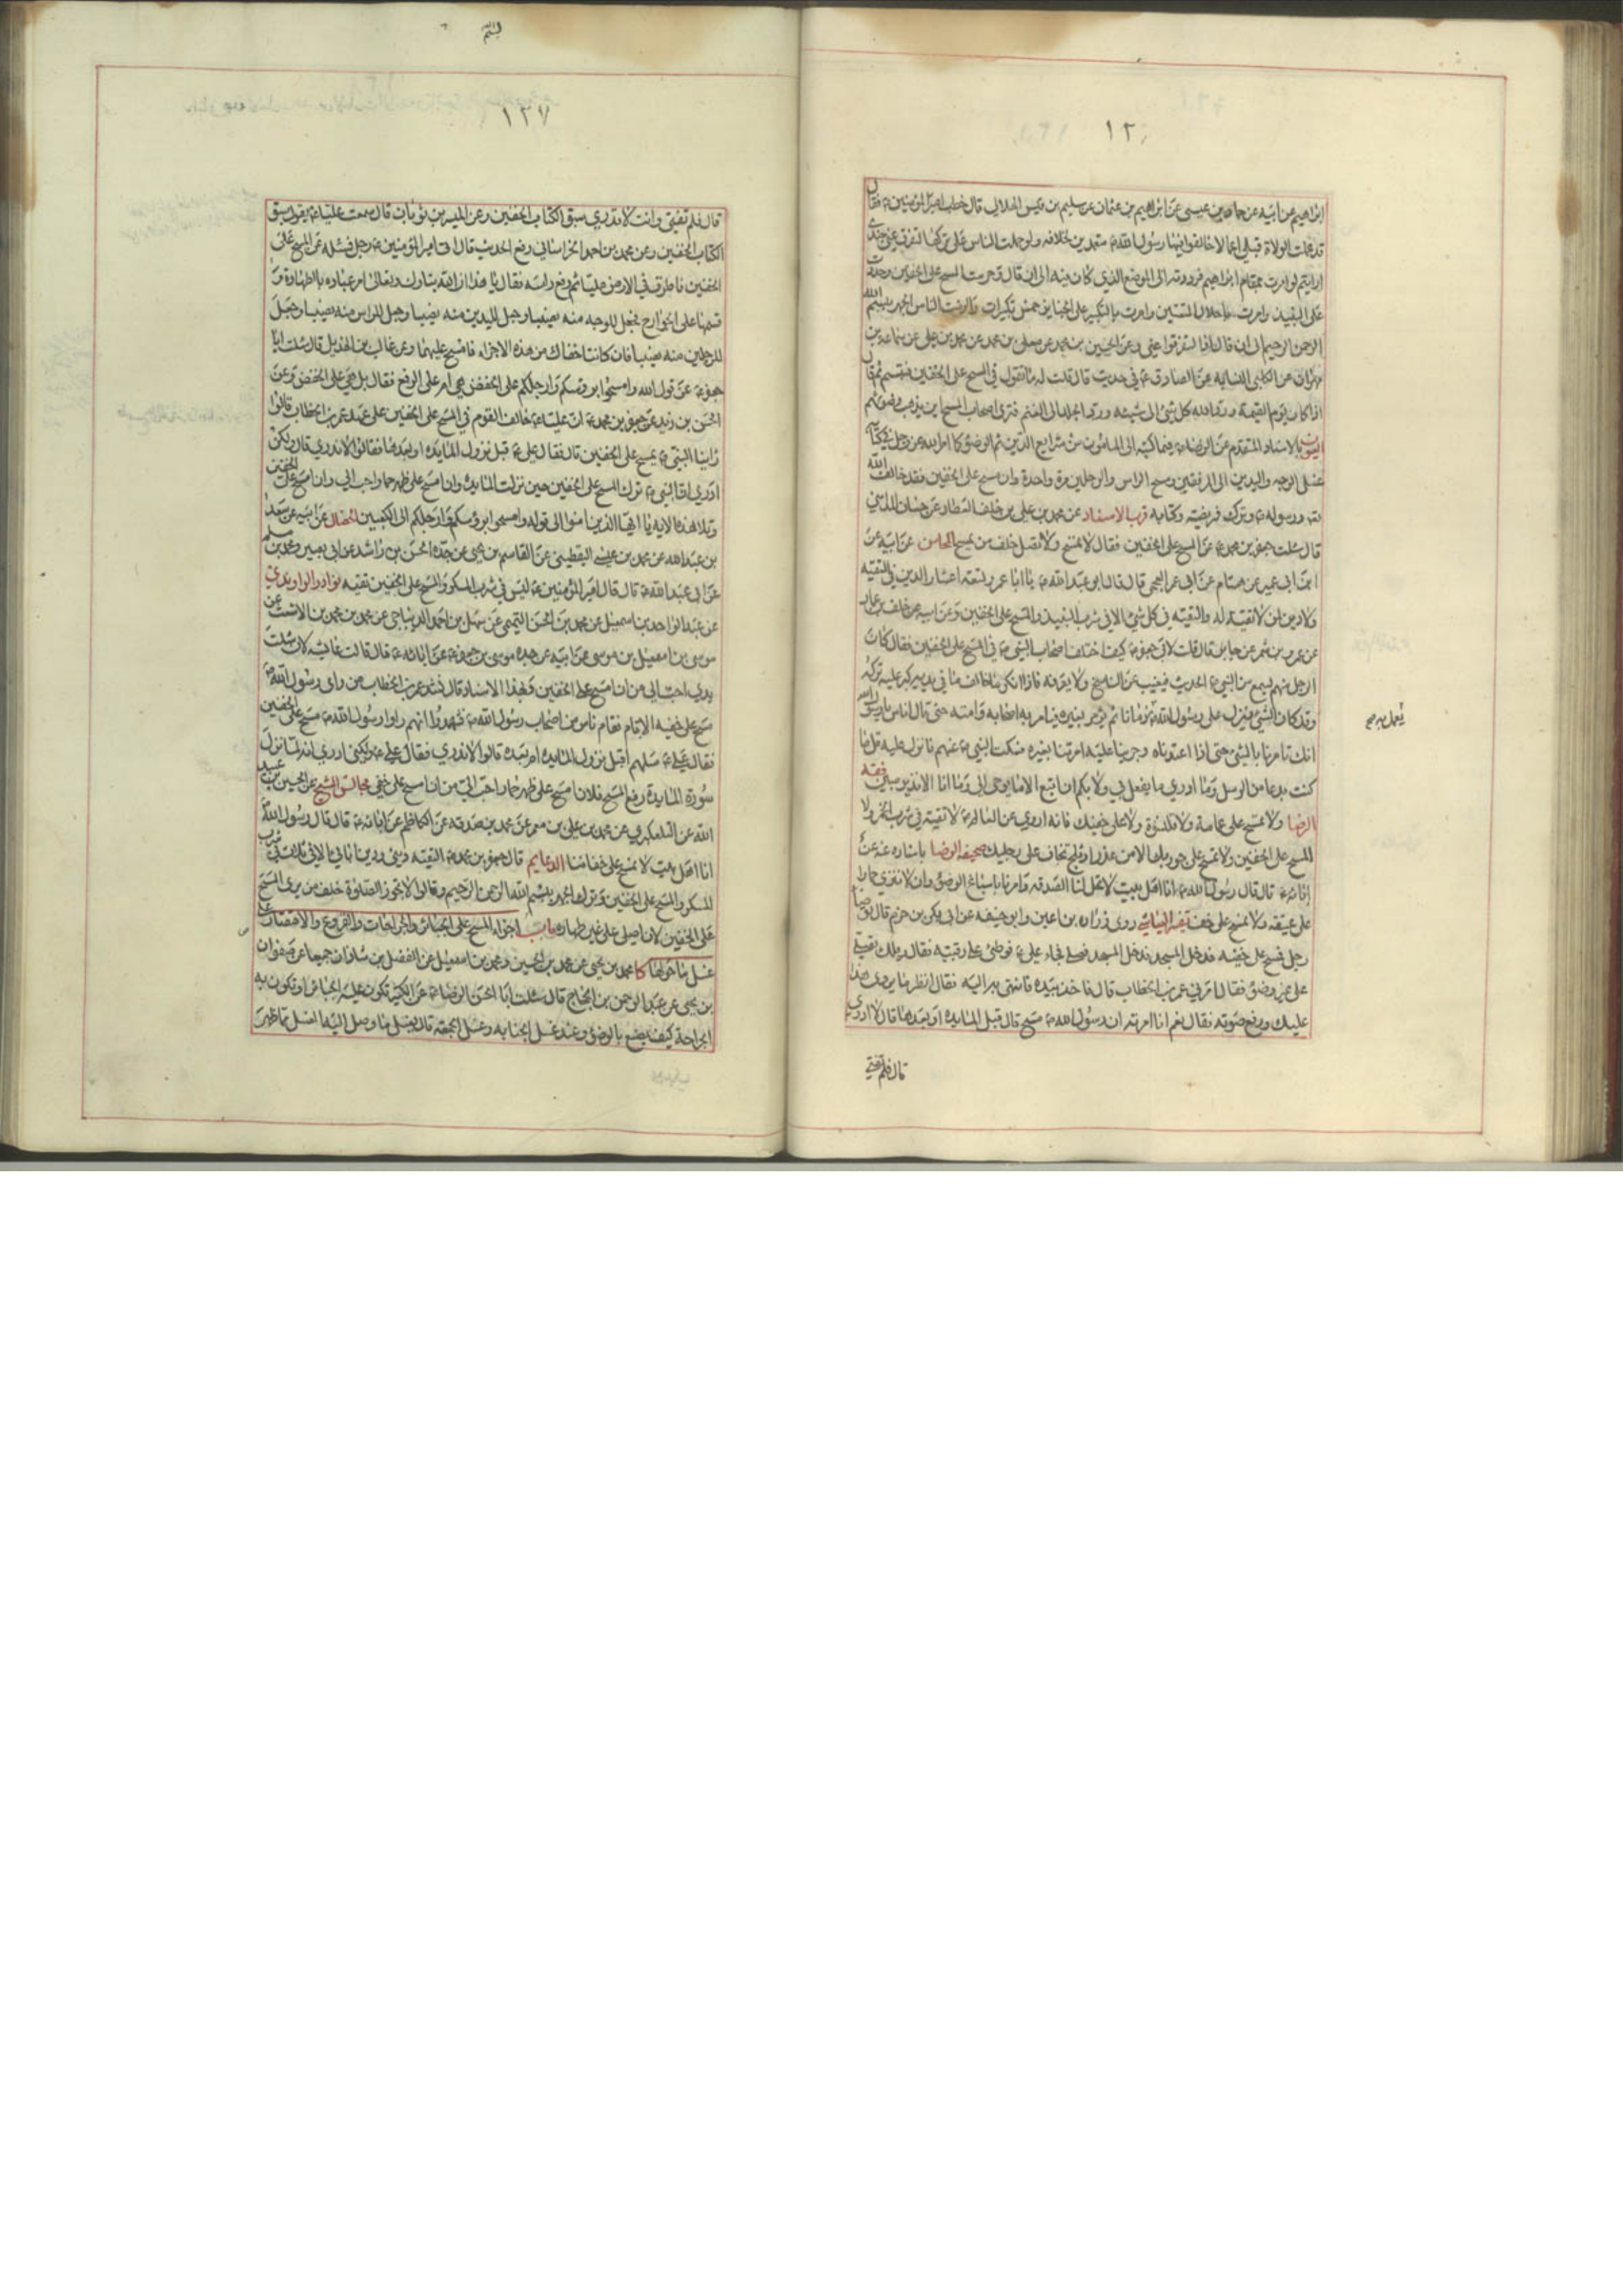 ١٢
ابراهيم عن ابيه عن حماد بن عيسى عن ابراهيم بن عثمان عن سليم بن قيس الهلالي قال خطب امير المؤمنين ع فقال
قد عملت الولاة قبلي اعمالا خالفوا فيها رسول الله ص متعمدين لخلافه ولو حملت الناس على تركها لتفرق عني جندي
ارايتم لو امرت بمقام ابراهيم فرددته الى الموضع الذي كان فيه الى ان قال وحرمت المسح على الخفين وحددت
على النبيذ وامرت باحلال المتعتين وامرت بالتكبير على الجنايز خمس تكبيرات والزمت الناس الجهر ببسم الله
الرحمن الرحيم الى ان قال اذا لتفرقوا عني وعن الحسين بن محمد عن معلى بن محمد عن محمد بن علي عن سماعة بن
مهران عن الكلبي النسابه عن الصادق ع في حديث قال قلت له ما تقول في المسح على الخفين فتبسم ثم قال
اذا كان يوم القيمة ورد الله كل شئ الى شيئه ورد الجلد الى الغنم فترى اصحاب المسح اين يذهب وضوئهم
العيون بالاسناد المتقدم عن الرضا ع فيما كتبه الى المامون من شرايع الدين ثم الوضوء كما امر الله عز وجل في كتابه
غسل الوجه واليدين الى المرفقين ومسح الراس والرجلين مرة واحدة وان مسح على الخفين فقد خالف الله
ورسوله ص وترك فريضته وكتابه قرب الاسناد عن محمد بن علي بن خلف العطار عن حسان المدايني
قال سئلت جعفر بن محمد ع عن المسح على الخفين فقال لا تمسح ولا تصل خلف من يمسح المحاسن عن ابيه عن
ابن ابي عمير عن هشام عن ابي عمر العجمي قال قال ابو عبد الله ع يا ابا عمر تسعة اعشار الدين في التقيه
ولا دين لمن لا تقية له والتقيه في كل شئ الا في شرب النبيذ والمسح على الخفين وعن ابيه عن خلف بن حماد
عن عمرو بن شمر عن جابر قال قلت لابي جعفر ع كيف اختلف اصحاب النبي ص في المسح على الخفين فقال كان
الرجل منهم يسمع من النبي ص الحديث فيغيب عن الناسخ ولا يعرفه فاذا انكر ما خالف ما في يديه كبر عليه تركه
وقد كان الشئ ينزل على رسول الله ص زمانا ثم يؤمر بغيره فيامر به اصحابه وامته حتى قال اناس يا رسول الله
انك تامرنا بالشئ حتى اذا اعتدناه وجرينا عليه امرتنا بغيره فسكت النبي ص عنهم فانزل عليه قل ما
كنت بدعا من الرسل وما ادري ما يفعل بي ولا بكم ان اتبع الا ما يوحى الي وما انا الا نذير مبين فقه
الرضا ولا تمسح على عمامة ولا قلنسوة ولا على خفيك فانه اروي عن العالم ع لا تقية في شرب الخمر ولا
المسح على الخفين ولا تمسح على جوربك الا من عذر او ثلج تخاف على رجليك صحيفة الرضا باسناده عنه عن
ابائه ع قال قال رسول الله ص انا اهل بيت لا تحل لنا الصدقه وامرنا باسباغ الوضوء وان لا ننزي حمارا
على عتيقه ولا نمسح على خف تفسير العياشي روى زراره بن اعين وابو حنيفه عن ابي بكر بن حزم قال توضا
رجل فمسح على خفيه فدخل المسجد فصلى فجاء علي ع فوطئ على رقبته فقال ويلك تصلي
على غير وضوء فقال امرني عمر بن الخطاب قال فاخذ بيده فانتهى به اليه فقال انظر ما يروي هذا
عليك ورفع صوته فقال نعم انا امرته ان رسول الله ص مسح قال قبل المايده او بعدها قال لا ادري
قال فلم تفتي
١٢٧
قال فلم تفتي وانت لا تدري سبق الكتاب الخفين وعن الميسر بن ثوبان قال سمعت عليا ع يقول سبق
الكتاب الخفين وعن محمد بن احمد الخراساني رفع الحديث قال اتى امير المؤمنين ع رجل فسئله عن المسح على
الخفين فاطرق في الارض مليا ثم رفع راسه فقال يا هذا ان الله تبارك وتعالى امر عباده بالطهارة و
قسمها على الجوارح فجعل للوجه منه نصيبا وجعل لليدين منه نصيبا وجعل للراس منه نصيبا وجعل
للرجلين منه نصيبا فان كانتا خفاك من هذه الاجزاء فامسح عليهما وعن غالب بن الهذيل قال سئلت ابا
جعفر ع عن قول الله وامسحوا برؤسكم وارجلكم على الخفض هي ام على الرفع فقال بل هي على الخفض وعن
الحسن بن زيد عن جعفر بن محمد ع ان عليا ع خالف القوم في المسح على الخفين على عهد عمر بن الخطاب قالوا
راينا النبي ص يمسح على الخفين قال فقال علي ع قبل نزول المايده او بعدها فقالوا لا ندري قال ولكن
ادري ان النبي ص ترك المسح على الخفين حين نزلت المايده ولان امسح على ظهر حمار احب الي من ان امسح على الخفين
وتلا هذه الايه يا ايها الذين امنوا الى قوله وامسحوا برؤسكم وارجلكم الى الكعبين الخصال عن ابيه عن سعد
بن عبد الله عن محمد بن عيسى اليقطيني عن القاسم بن يحيى عن جده الحسن بن راشد عن ابي بصير ومحمد بن مسلم
عن ابي عبد الله ع قال قال امير المؤمنين ع ليس في شرب المسكر والمسح على الخفين تقيه نوادر الراوندي
عن عبد الواحد بن اسمعيل عن محمد بن الحسن التميمي عن سهل بن احمد الديباجي عن محمد بن محمد بن الاشعث عن
موسى بن اسمعيل بن موسى عن ابيه عن جده موسى بن جعفر ع عن ابائه ع قال قالت عايشه لان شلت
يدي احب الي من ان امسح على الخفين وبهذا الاسناد قال نشد عمر بن الخطاب من راى رسول الله ص
مسح على خفيه الا قام فقام ناس من اصحاب رسول الله ص فشهدوا انهم راوا رسول الله ص مسح على الخفين
فقال علي ع سلهم اقبل نزول المايده ام بعده قالوا لا ندري فقال علي ع ولكني ادري انه لما نزل
سورة المايدة رفع المسح فلان امسح على ظهر حمار احب الي من ان امسح على خفي مجالس الشيخ عن الحسين بن عبيد
الله عن التلعكبري عن محمد بن علي بن معمر عن محمد بن صدقه عن الكاظم عن ابائه ع قال قال رسول الله ص
انا اهل بيت لا نمسح على خفافنا الدعايم قال جعفر بن محمد ع التقيه ديني ودين ابائي الا في ثلاث في شرب
المسكر والمسح على الخفين وترك الجهر ببسم الله الرحمن الرحيم وقالوا لا تجوز الصلوة خلف من يرى المسح
على الخفين لانه صلى على غير طهاره باب اجزاء المسح على الجبائر والجراحات والقروع والاقتصار على
غسل ما حولها كا محمد بن يحيى عن محمد بن الحسين ومحمد بن اسمعيل عن الفضل بن شاذان جميعا عن صفوان
بن يحيى عن عبد الرحمن بن الحجاج قال سئلت ابا الحسن الرضا ع عن الكسير تكون عليه الجبائر او تكون به
الجراحة كيف يصنع بالوضوء وعند غسل الجنابه وغسل الجمعه قال يغسل ما وصل اليه الغسل مما ظهر